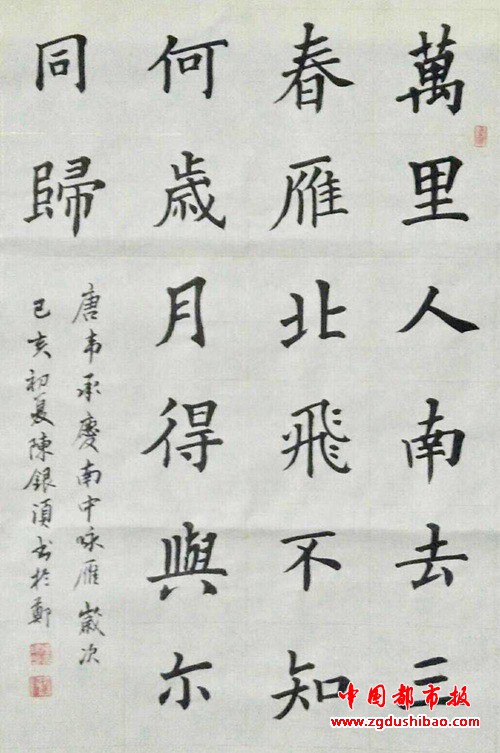 萬里人南去三
春雁北飛不知
何歲月得與尒
同歸
唐韦承慶南中咏雁歲次
己亥初夏陳銀湏书於鄭
中国都市报
www.zgdushibao.com